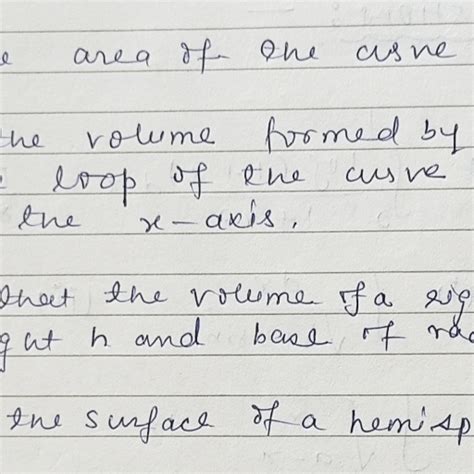 e area of the curve
the volume formed by
loop of the curve
the x-axis.
that the volume of a rig
ght h and base of rad
the surface of a hemisp